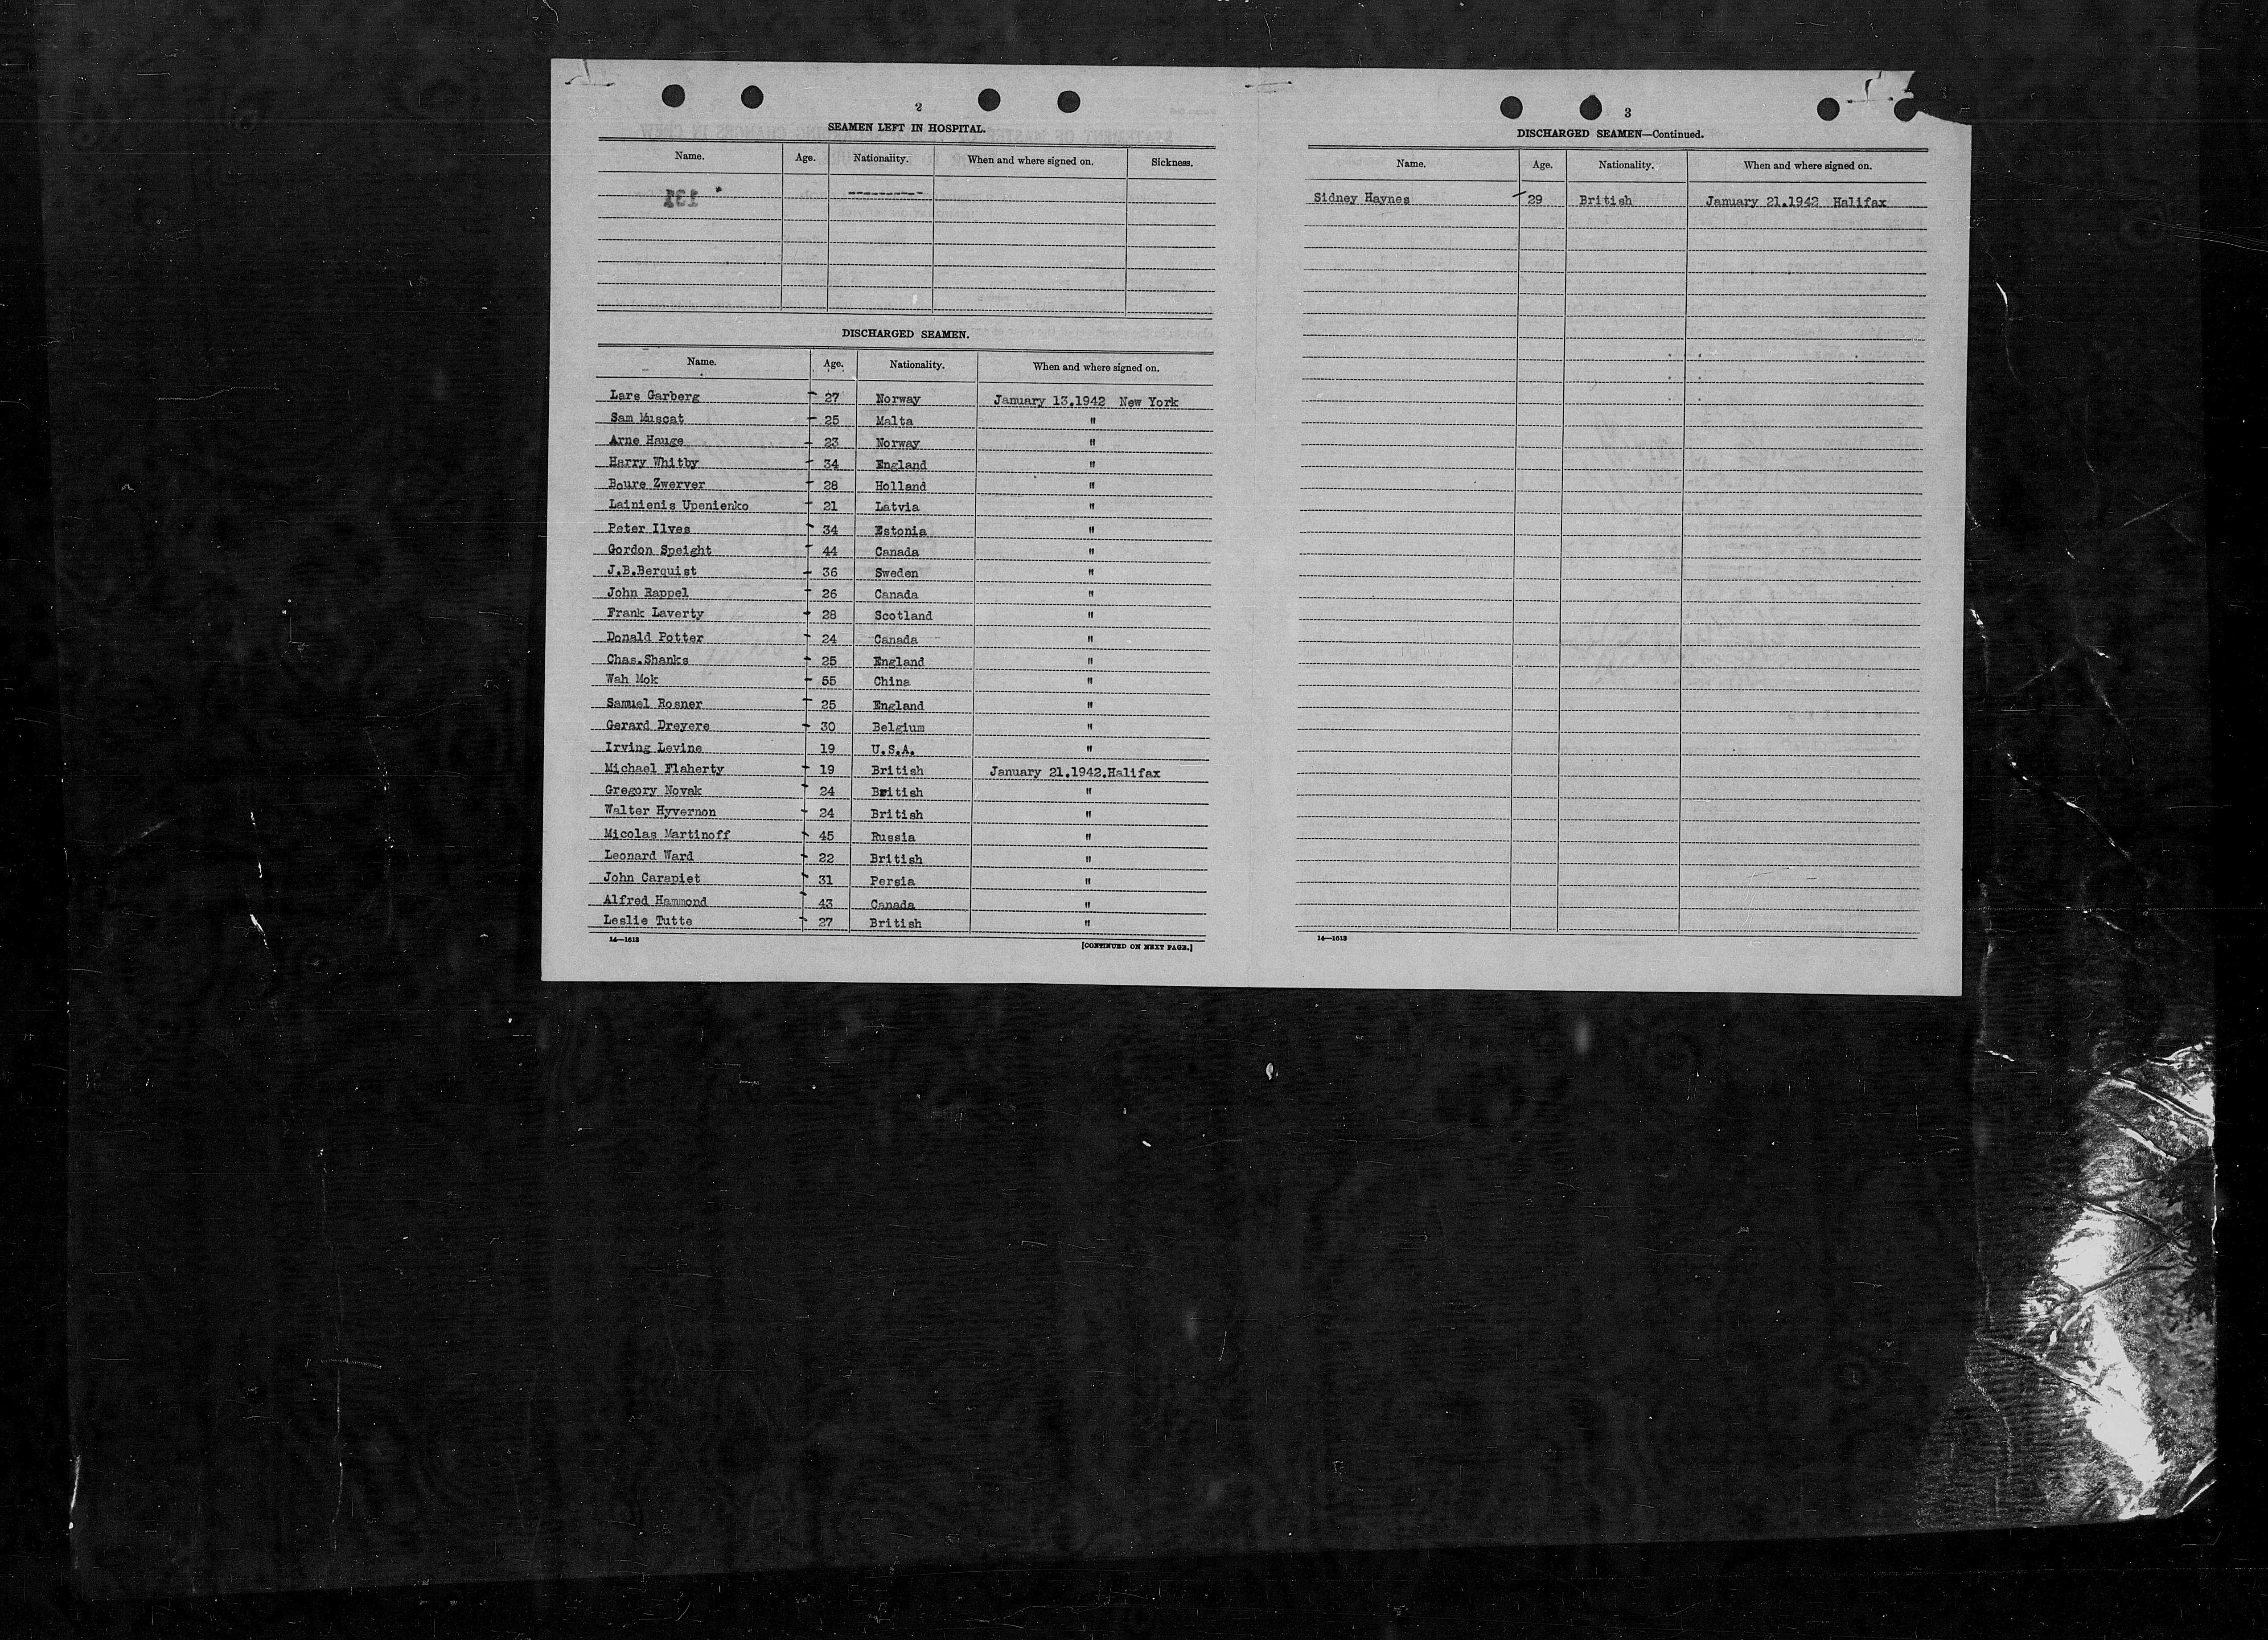 2
SEAMEN LEFT IN HOSPITAL.
Name. Age. Nationality. When and where signed on. Sickness.
131 ----------
DISCHARGED SEAMEN.
Name. Age. Nationality. When and where signed on.
Lars Garberg 27 Norway January 13.1942 New York
Sam Muscat 25 Malta "
Arne Hauge 23 Norway "
Harry Whitby 34 England "
Boure Zwerver 28 Holland "
Lainienis Upenienko 21 Latvia "
Peter Ilves 34 Estonia "
Gordon Speight 44 Canada "
J.B.Berquist 36 Sweden "
John Rappel 26 Canada "
Frank Laverty 28 Scotland "
Donald Potter 24 Canada "
Chas.Shanks 25 England "
Wah Mok 55 China "
Samuel Rosner 25 England "
Gerard Dreyere 30 Belgium "
Irving Levine 19 U.S.A. "
Michael Flaherty 19 British January 21.1942.Halifax
Gregory Novak 24 British "
Walter Hyvernon 24 British "
Micolas Martinoff 45 Russia "
Leonard Ward 22 British "
John Carapiet 31 Persia "
Alfred Hammond 43 Canada "
Leslie Tutte 27 British "
14—1613 [CONTINUED ON NEXT PAGE.]
3
DISCHARGED SEAMEN—Continued.
Name. Age. Nationality. When and where signed on.
Sidney Haynes 29 British January 21.1942 Halifax
14—1613